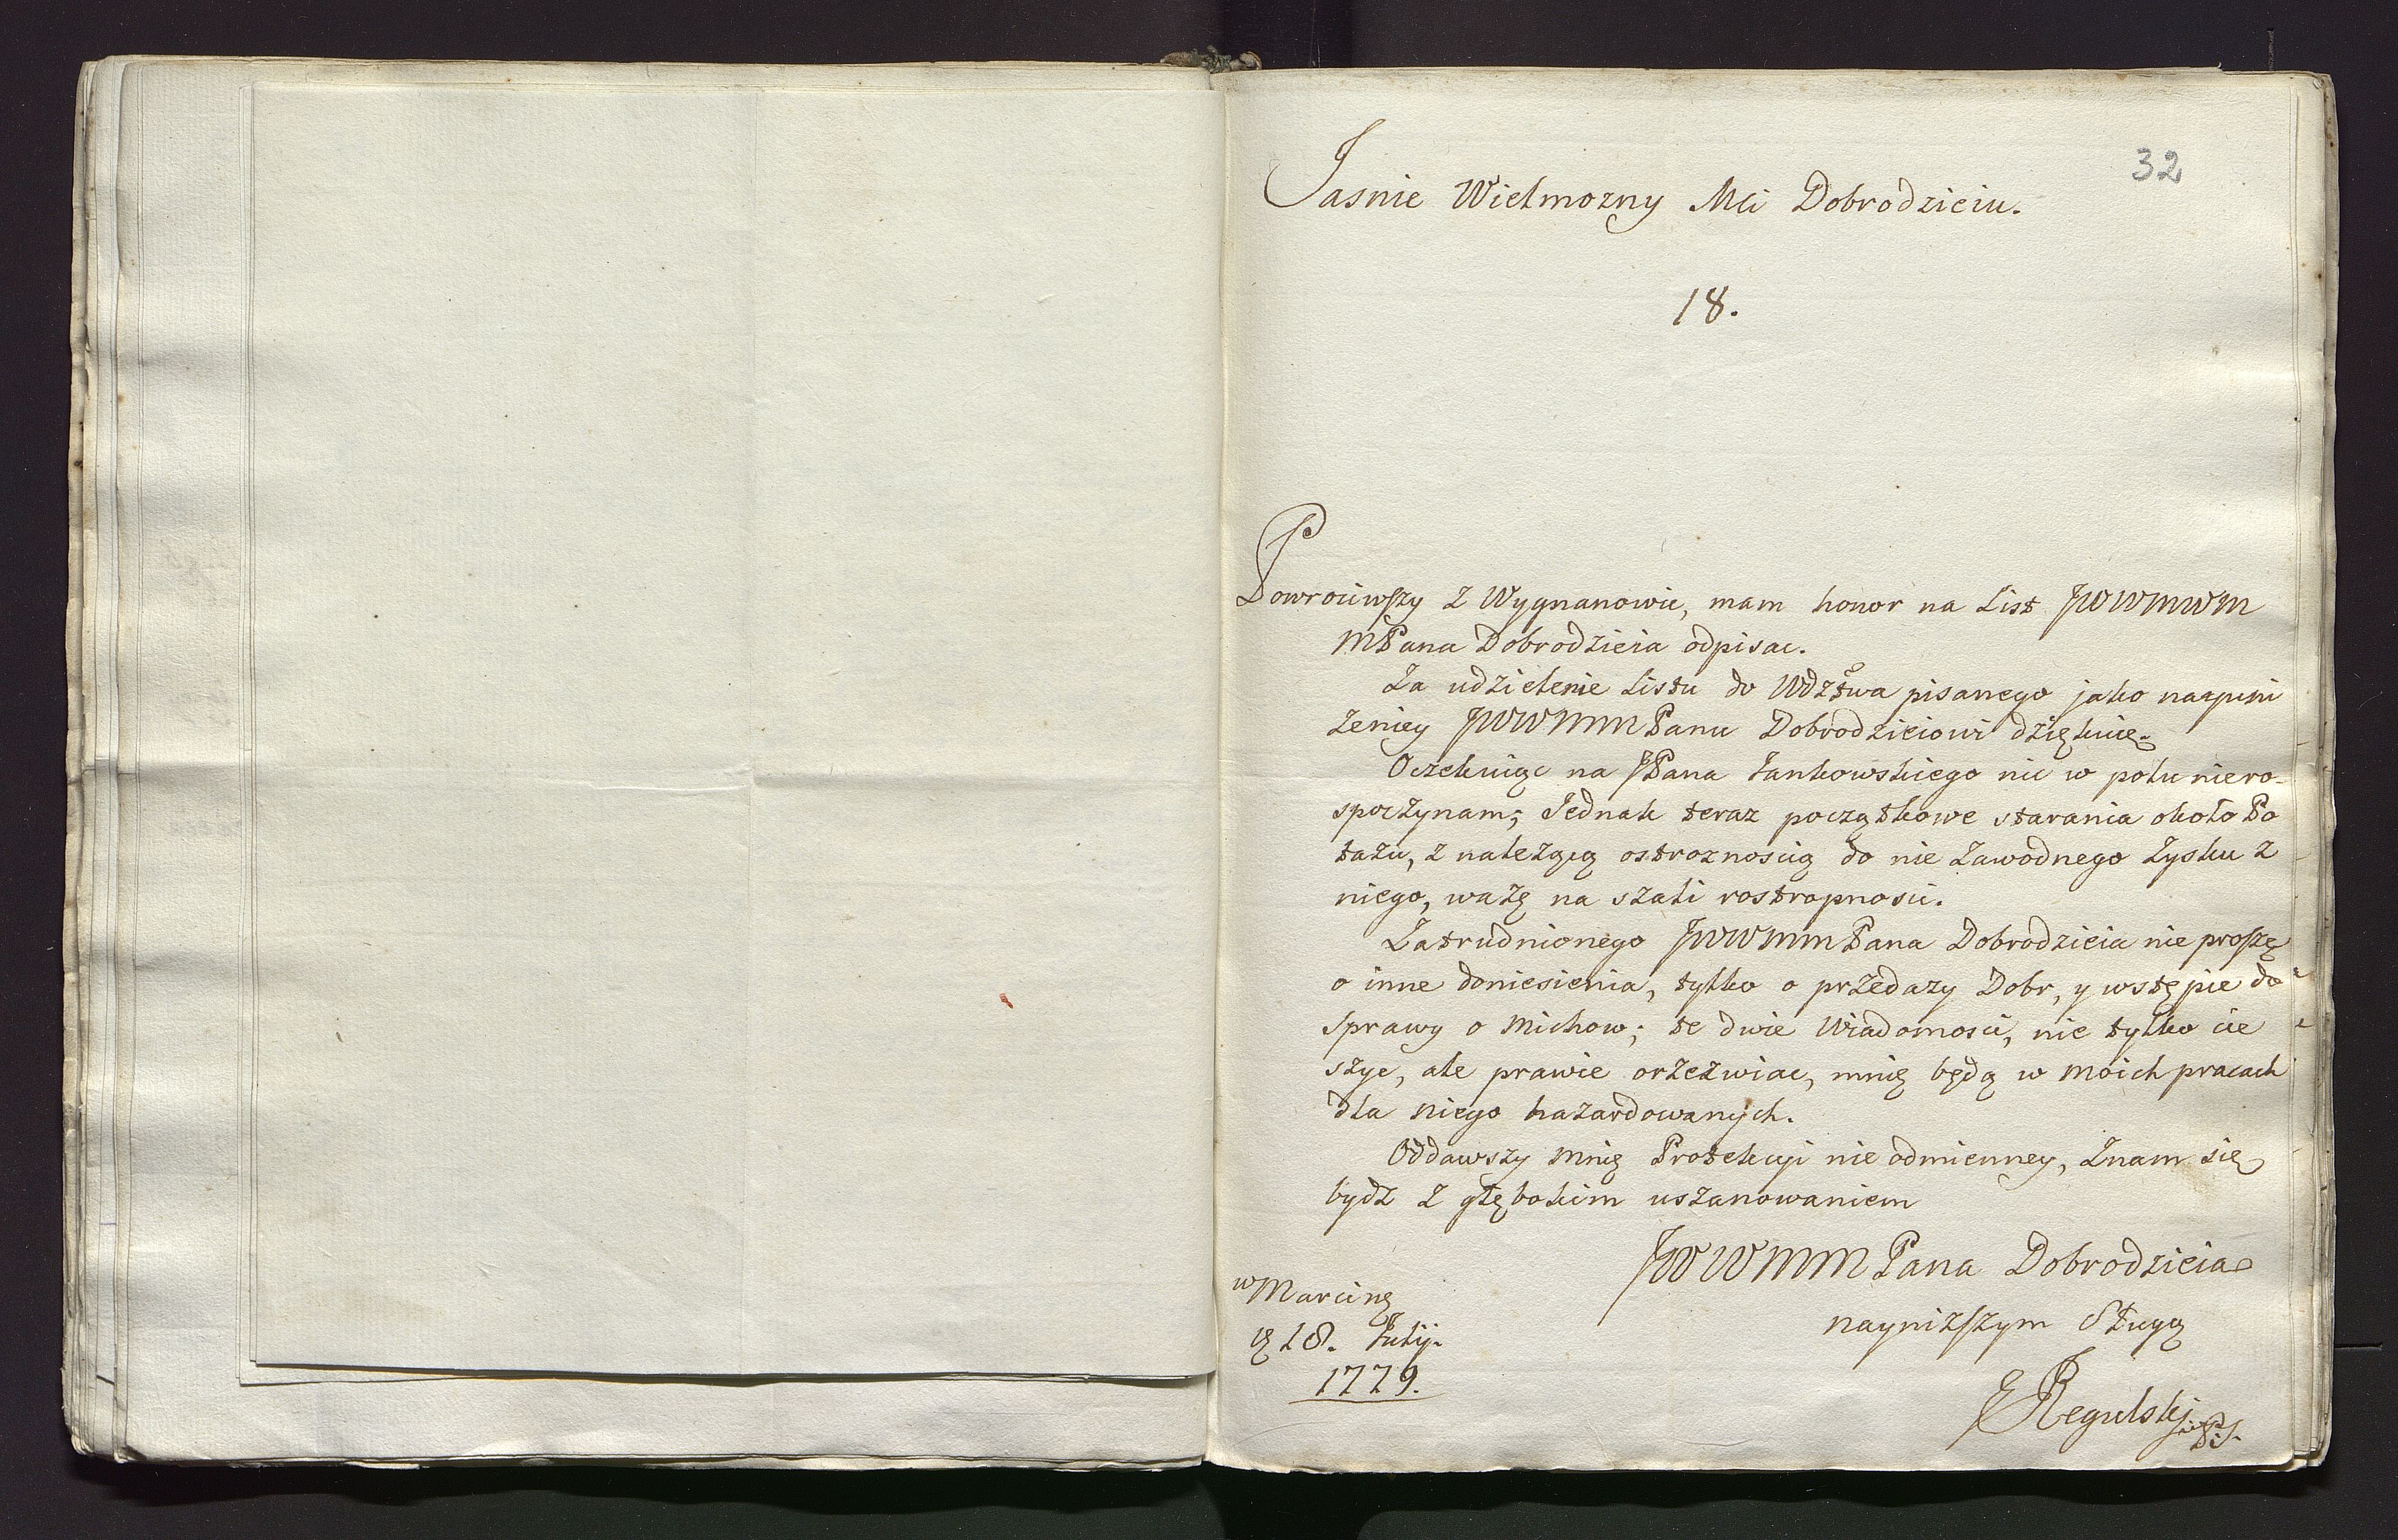 32
Jasnie Wielmozny Mci Dobrodzieiu.
18.
Powrociwszy z Wygnanowic, mam honor na List JWWMWM
MPana Dobrodzieia odpisac.
Za udzielenie Listu do Wdztwa pisanego jako nayuni
zeniey JWWMM Panu Dobrodzieiowi dziękuię.
Oczekuiąc na JPana Jankowskiego nic w polu niero-
spoczynam; Jednak teraz początkowe starania około Po
tażu, z nalezącą ostroznoscią do nie zawodnego zysku z
niego, ważę na szali rostropnosci.
Zatrudnionego JWWMM Pana Dobrodzieia nie proszę
o inne doniesienia, tylko o przedazy Dobr, y wstępie do
sprawy o Michow; te dwie Wiadomosci, nie tylko cie
szyc, ale prawie orzezwiac, mnię będą w moich pracach
dla niego hazardowanych.
Oddawszy mnię Protekcyi nie odmienney, znam się
bydz z głębokim uszanowaniem
JWWMM Pana Dobrodzieia
nayniższym Sługą
w Marcinę
18. Julij.
1779.
Regulski